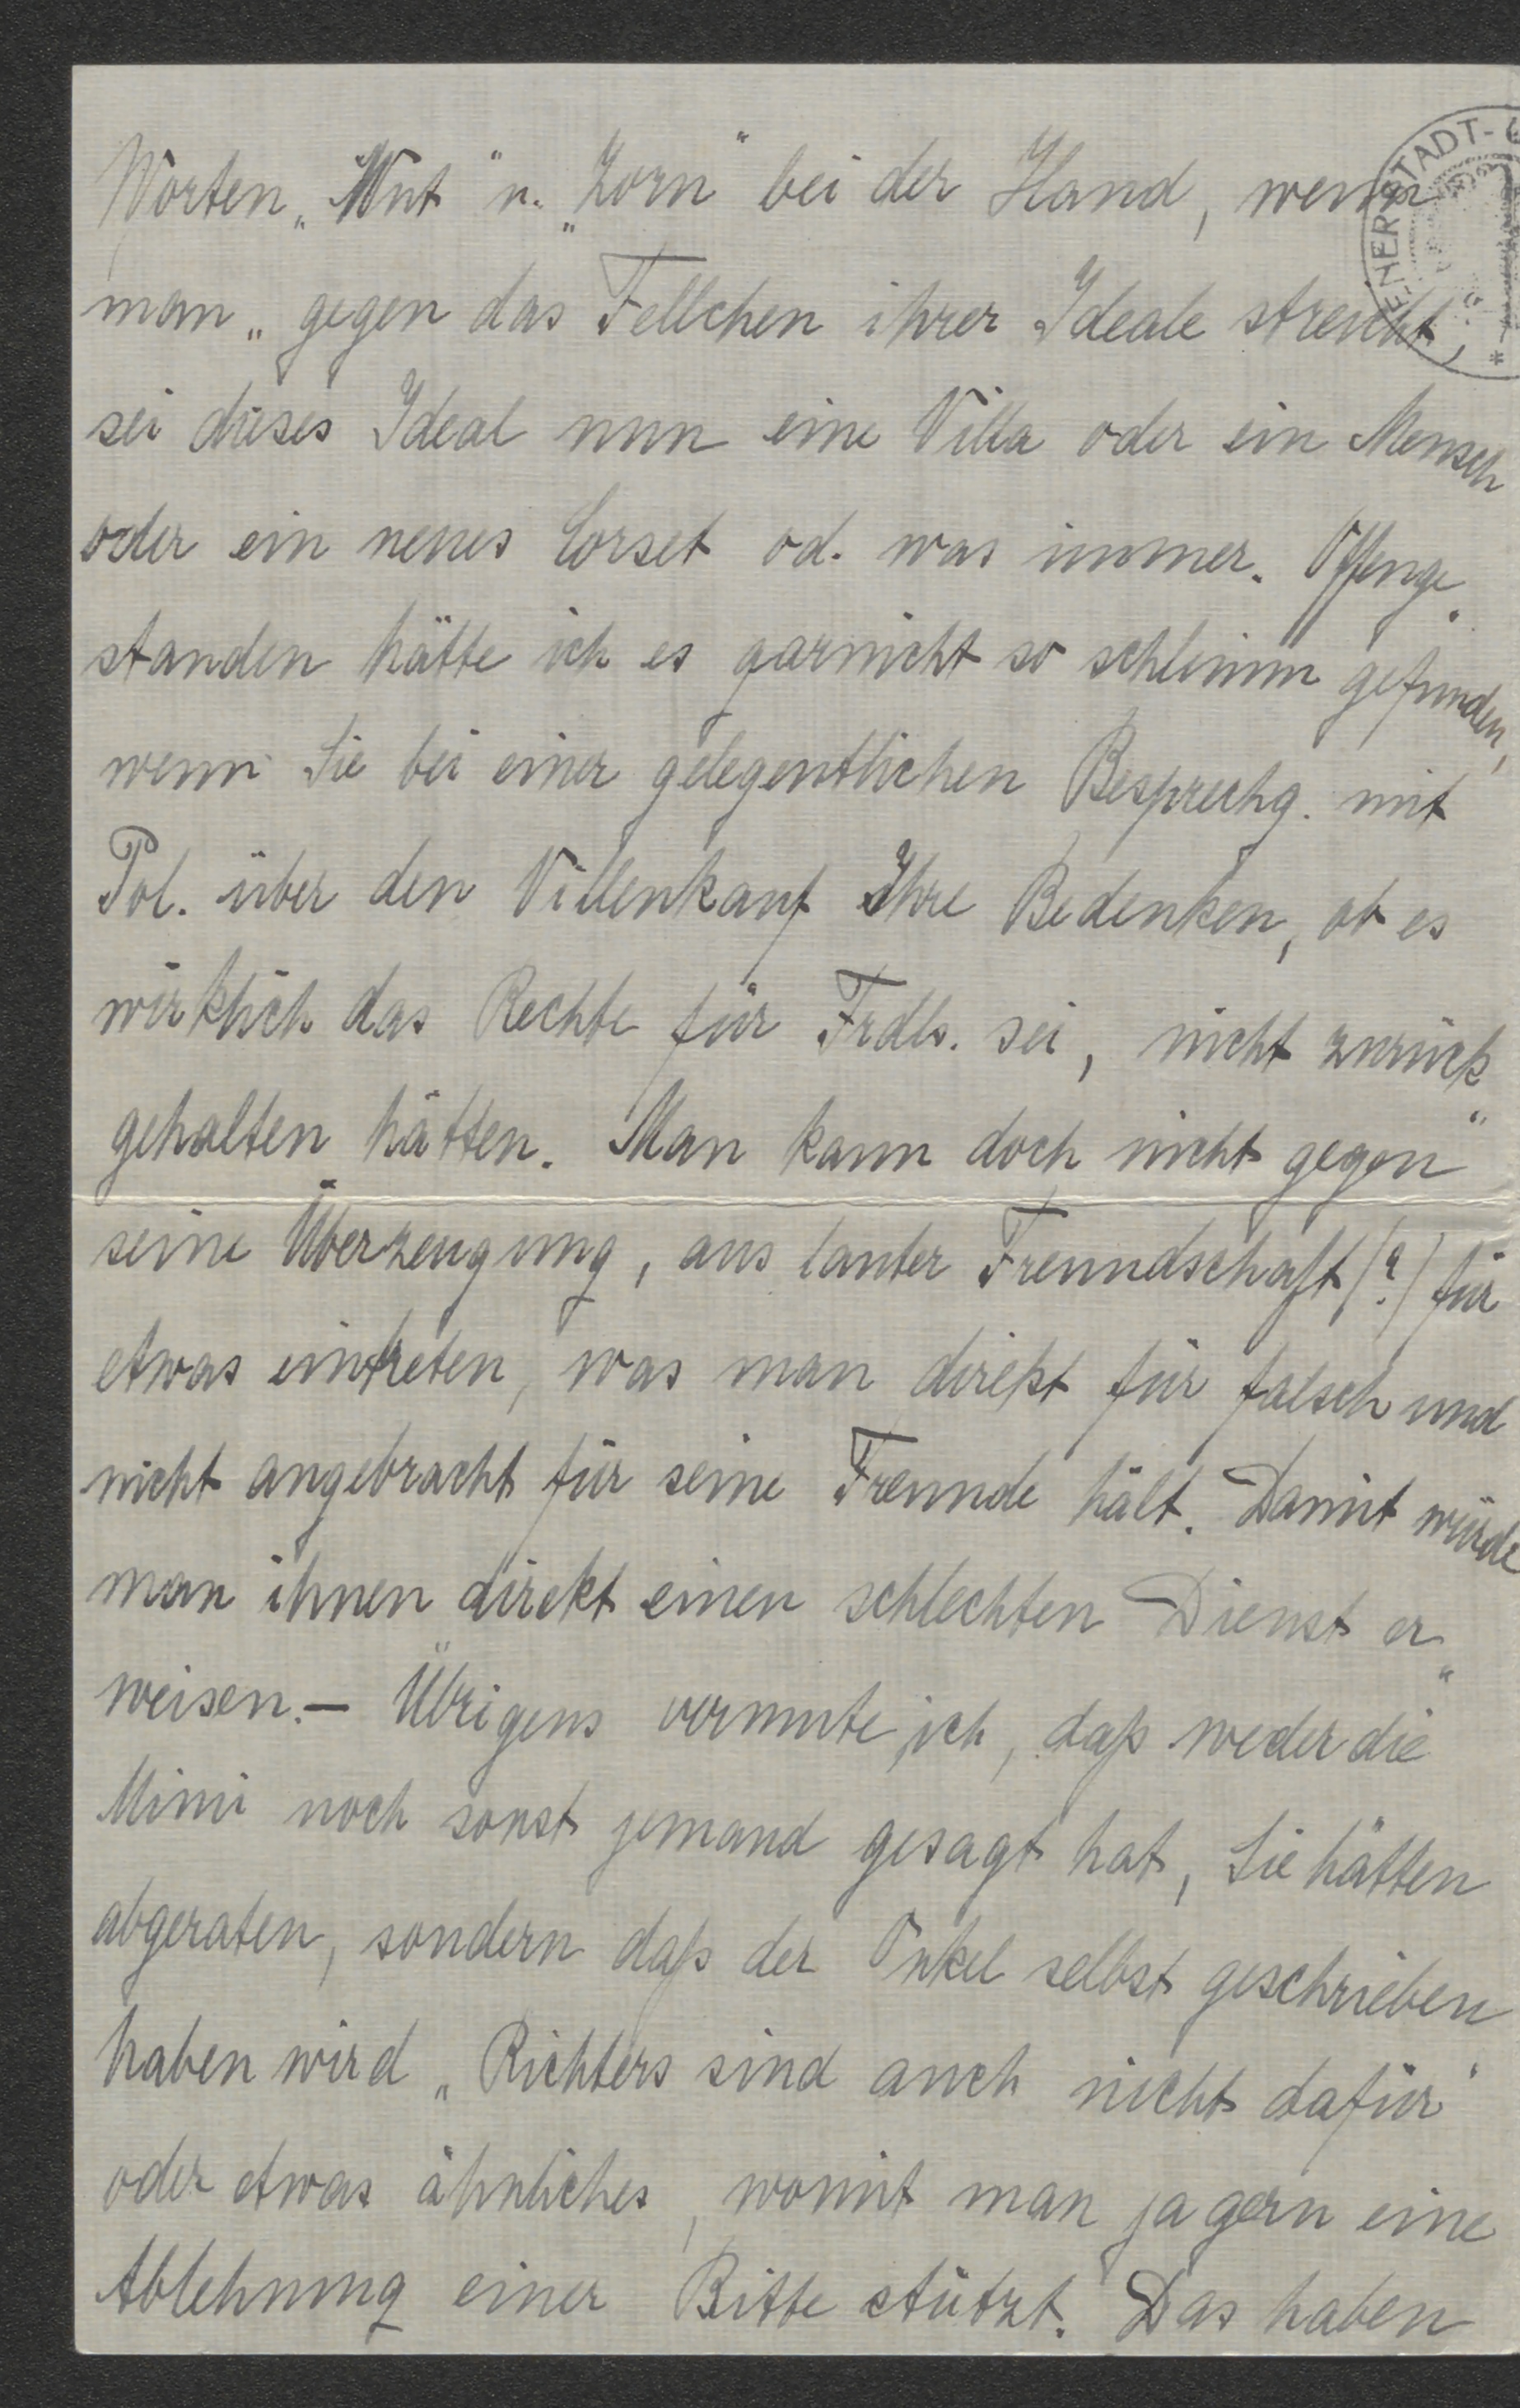 Worten „Wut“ u. „Zorn“ bei der Hand, wenn
man „gegen das Fellchen ihrer Ideale streicht“,
sei dieses Ideal nun eine Villa oder ein Mensch
oder ein neues Corset od. was immer. Offenge„
standen hätte ich es garnicht so schlimm gefunden,
wenn Sie bei einer gelegentlichen Besprechg. mit
Pol. über den Villenkauf Ihre Bedenken, ob es
wirklich das Rechte für Frdls. sei, nicht zurück„
gehalten hätten. Man kann doch nicht gegen
seine Überzeugung, aus lauter Freundschaft (?) für
etwas eintreten, was man direkt für falsch und
nicht angebracht für seine Freunde hält. Damit würde
man ihnen direkt einen schlechten Dienst er„
weisen. – Übrigens vermute ich, daß weder die
Mimi noch sonst jemand gesagt hat, Sie hätten
abgeraten, sondern daß der Onkel selbst geschrieben
haben wird „Richters sind auch nicht dafür“
oder etwas ähnliches, womit man ja gern eine
Ablehnung einer Bitte stützt. Das haben
ENER STADT-